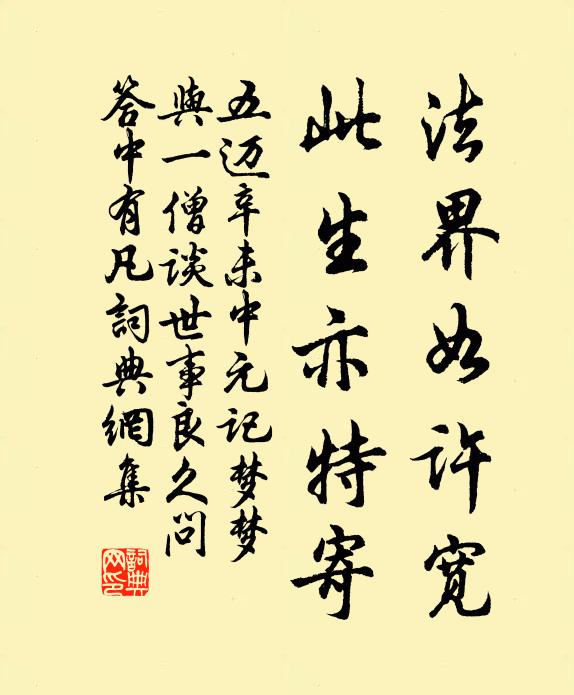 法界如许寛
此生亦特寄
五迈辛未中元记梦梦
與一僧談世事良久问
答中有凡詞典網集
詞典网印